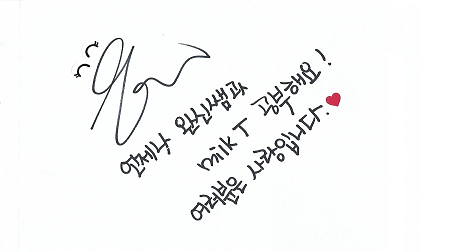 언제나 완신쌤과
milk T 공부해요!
여러분은 사랑입니다.